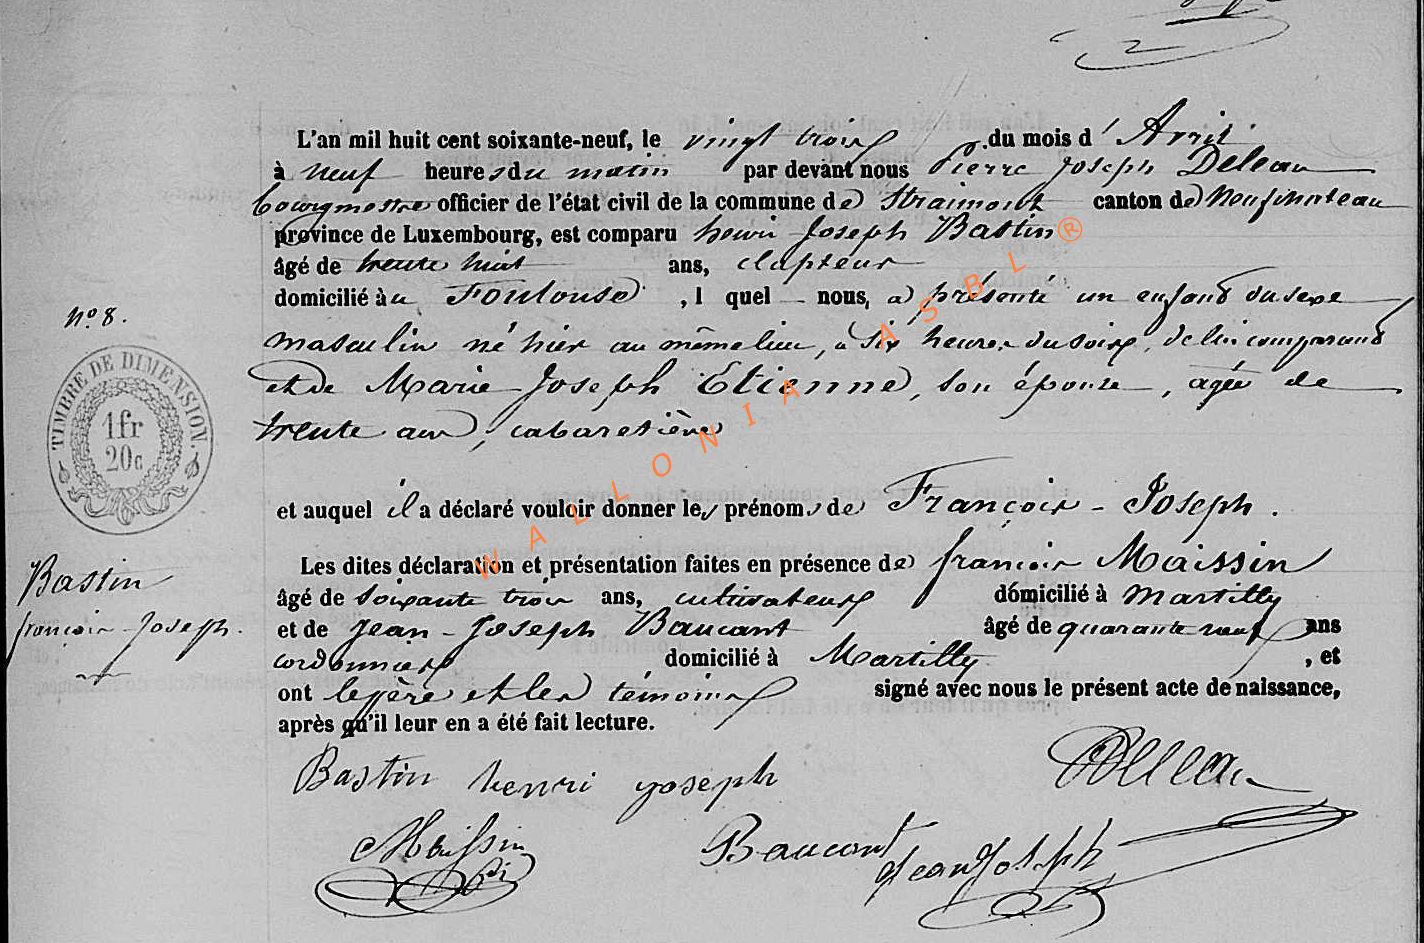 L'an mil huit cent soixante-neuf, le vingt trois du mois d'Avril
à neuf heures du matin par devant nous Pierre Joseph Deleau
bourgmestre officier de l'état civil de la commune de Straimont canton de Neufchateau
province de Luxembourg, est comparu henri Joseph Bastin
âgé de trente huit ans,
domicilié à Toulouse, lequel nous, a présenté un enfant du sexe
N° 8.
masculin né hier au même lieu, à six heures du soir, de lui comparant
et de Marie Joseph Etienne, son épouse, agée de
trente ans, cabaretière
TIMBRE DE DIMENSION.
1fr
20c
et auquel il a déclaré vouloir donner les prénoms de François - Joseph.
Les dites déclaration et présentation faites en présence de françois Maissin
Bastin
âgé de soixante trois ans, cultivateur domicilié à Martilly
françois - Joseph.
et de Jean - Joseph Baucant âgé de quarante neuf ans
cordonnier domicilié à Martilly, et
ont le père et les témoins signé avec nous le présent acte de naissance,
après qu'il leur en a été fait lecture.
Bastin henri joseph
Deleau
Maissin
Baucant Jean Joseph
WALLONIA ASBL ®